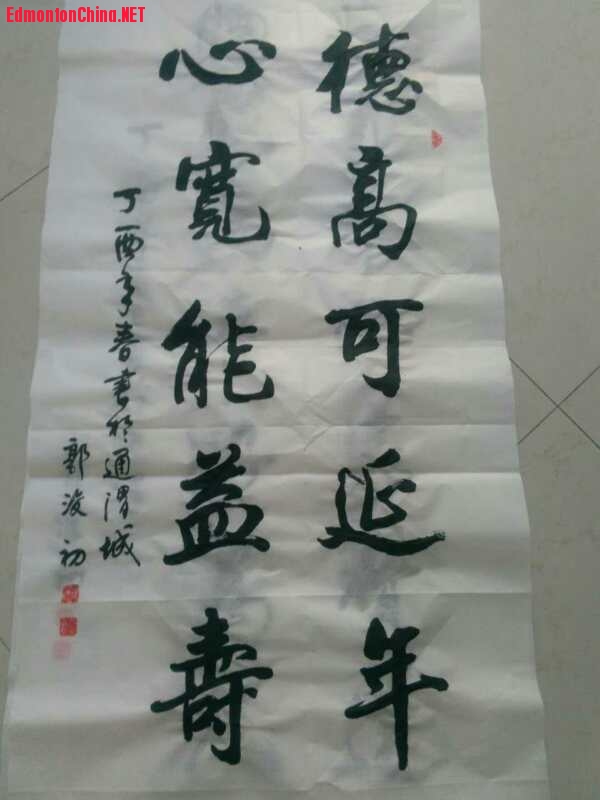 EdmontonChina.NET
德高可延年
心寬能益壽
丁酉年春書於通渭城
郭浚初